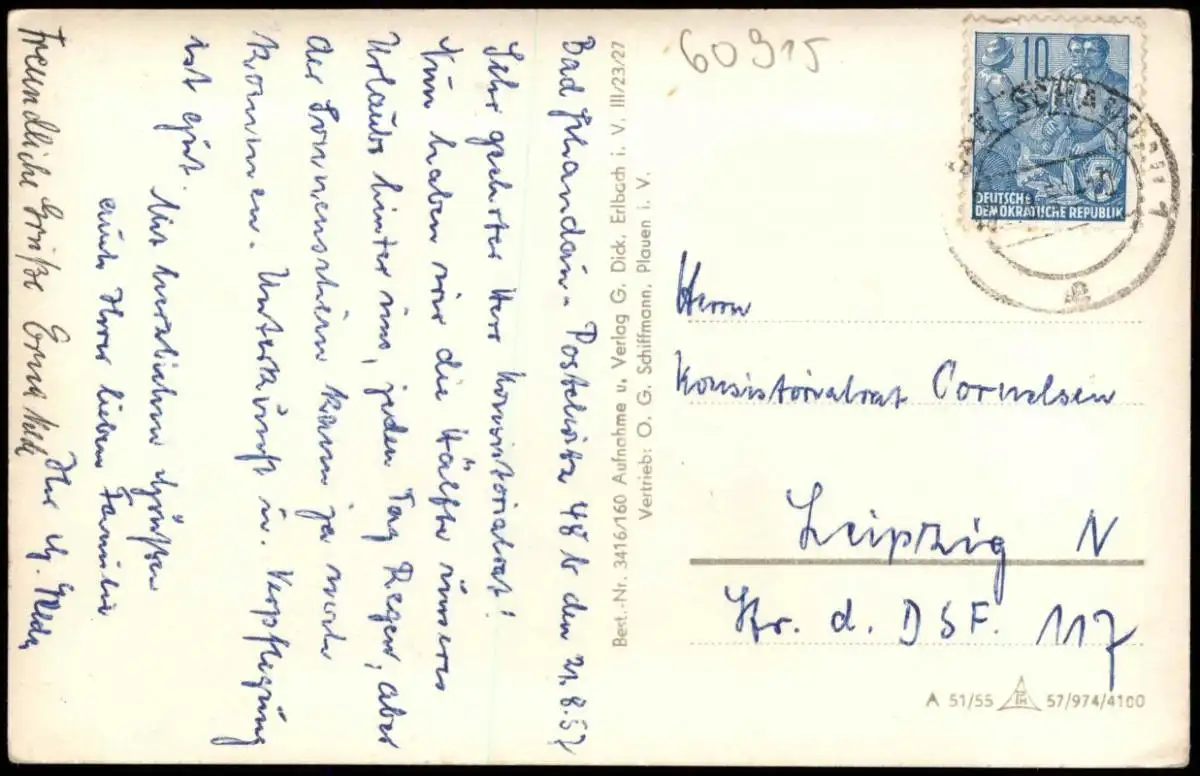 60915
10
DEUTSCHE
DEMOKRATISCHE REPUBLIK
BAD SCHANDAU 1
a
Bad Schandau-Postelwitz 48 b den 21.8.57
Sehr geehrter Herr Konsistorialrat!
Nun haben wir die Hälfte unseres
Urlaubs hinter uns, jeden Tag Regen, aber
der Sonnenschein kann ja noch
kommen. Unterkunft u. Verpflegung
ist gut.
Mit herzlichen Grüßen
auch Ihrer lieben Familie
Ihr
Freundliche Grüße
Best.-Nr. 3416/160 Aufnahme u. Verlag G. Dick, Erlbach i. V. III/23/27
Vertrieb: O. G. Schiffmann, Plauen i. V.
Herrn
Konsistorialrat Cornelsen
Leipzig N
Str. d. DSF. 117
A 51/55 57/974/4100